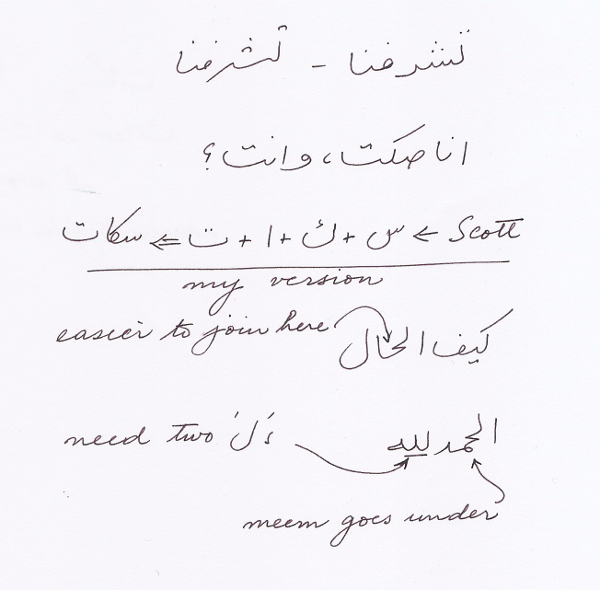 تشرفنا - تشرفنا
انا صكت، وانت؟
Scott ← س + ك + ا + ت ⇐ سكات
my version
easier to join here
كيف الحال
need two 'ل's
الحمد لله
meem goes under